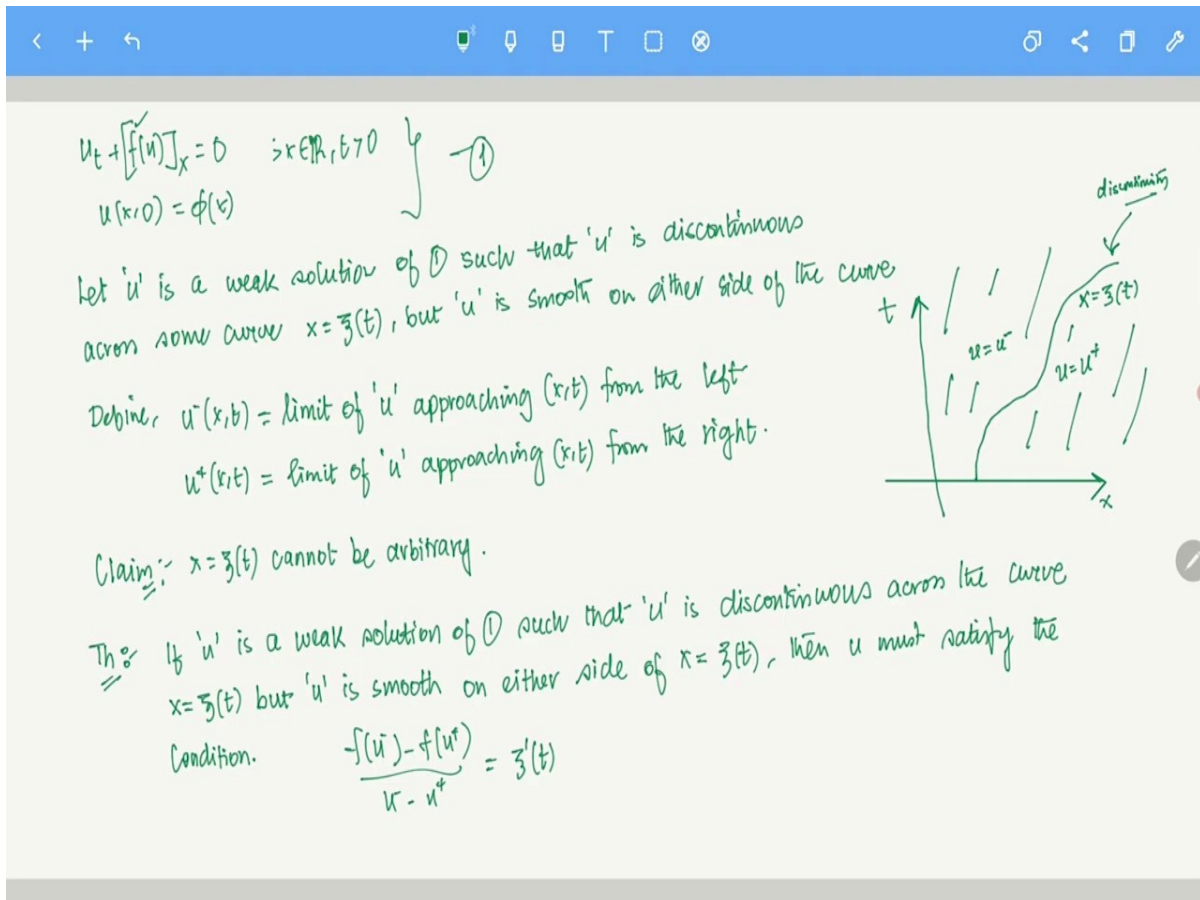 u_t + [f(u)]_x = 0 ; x∈ℝ, t>0 } —①
u(x,0) = φ(x)
Let 'u' is a weak solution of ① such that 'u' is discontinuous
across some curve x = ξ(t), but 'u' is smooth on either side of the curve
Define, u⁻(x,t) = limit of 'u' approaching (x,t) from the left
u⁺(x,t) = limit of 'u' approaching (x,t) from the right.
discontinuity
t
x = ξ(t)
u = u⁻
u = u⁺
x
Claim: x = ξ(t) cannot be arbitrary.
Th: If 'u' is a weak solution of ① such that 'u' is discontinuous across the curve
x = ξ(t) but 'u' is smooth on either side of x = ξ(t), then u must satisfy the
Condition. (f(u⁻) - f(u⁺)) / (u⁻ - u⁺) = ξ'(t)